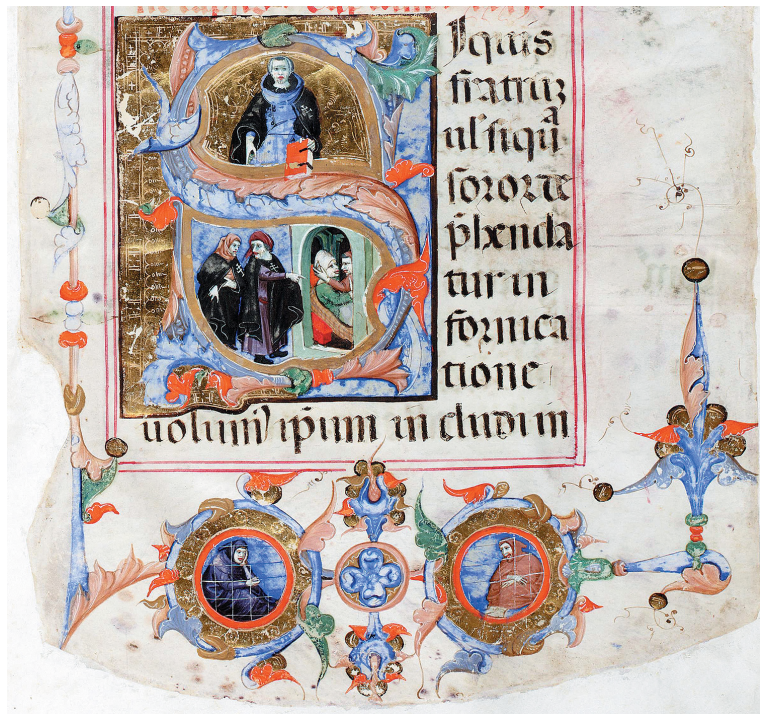 SIquis
fratruʒ
ul' siqua
soror de
p̄henda
tur in
fornica
tione
uolum᾽ ip̄um in cludi in